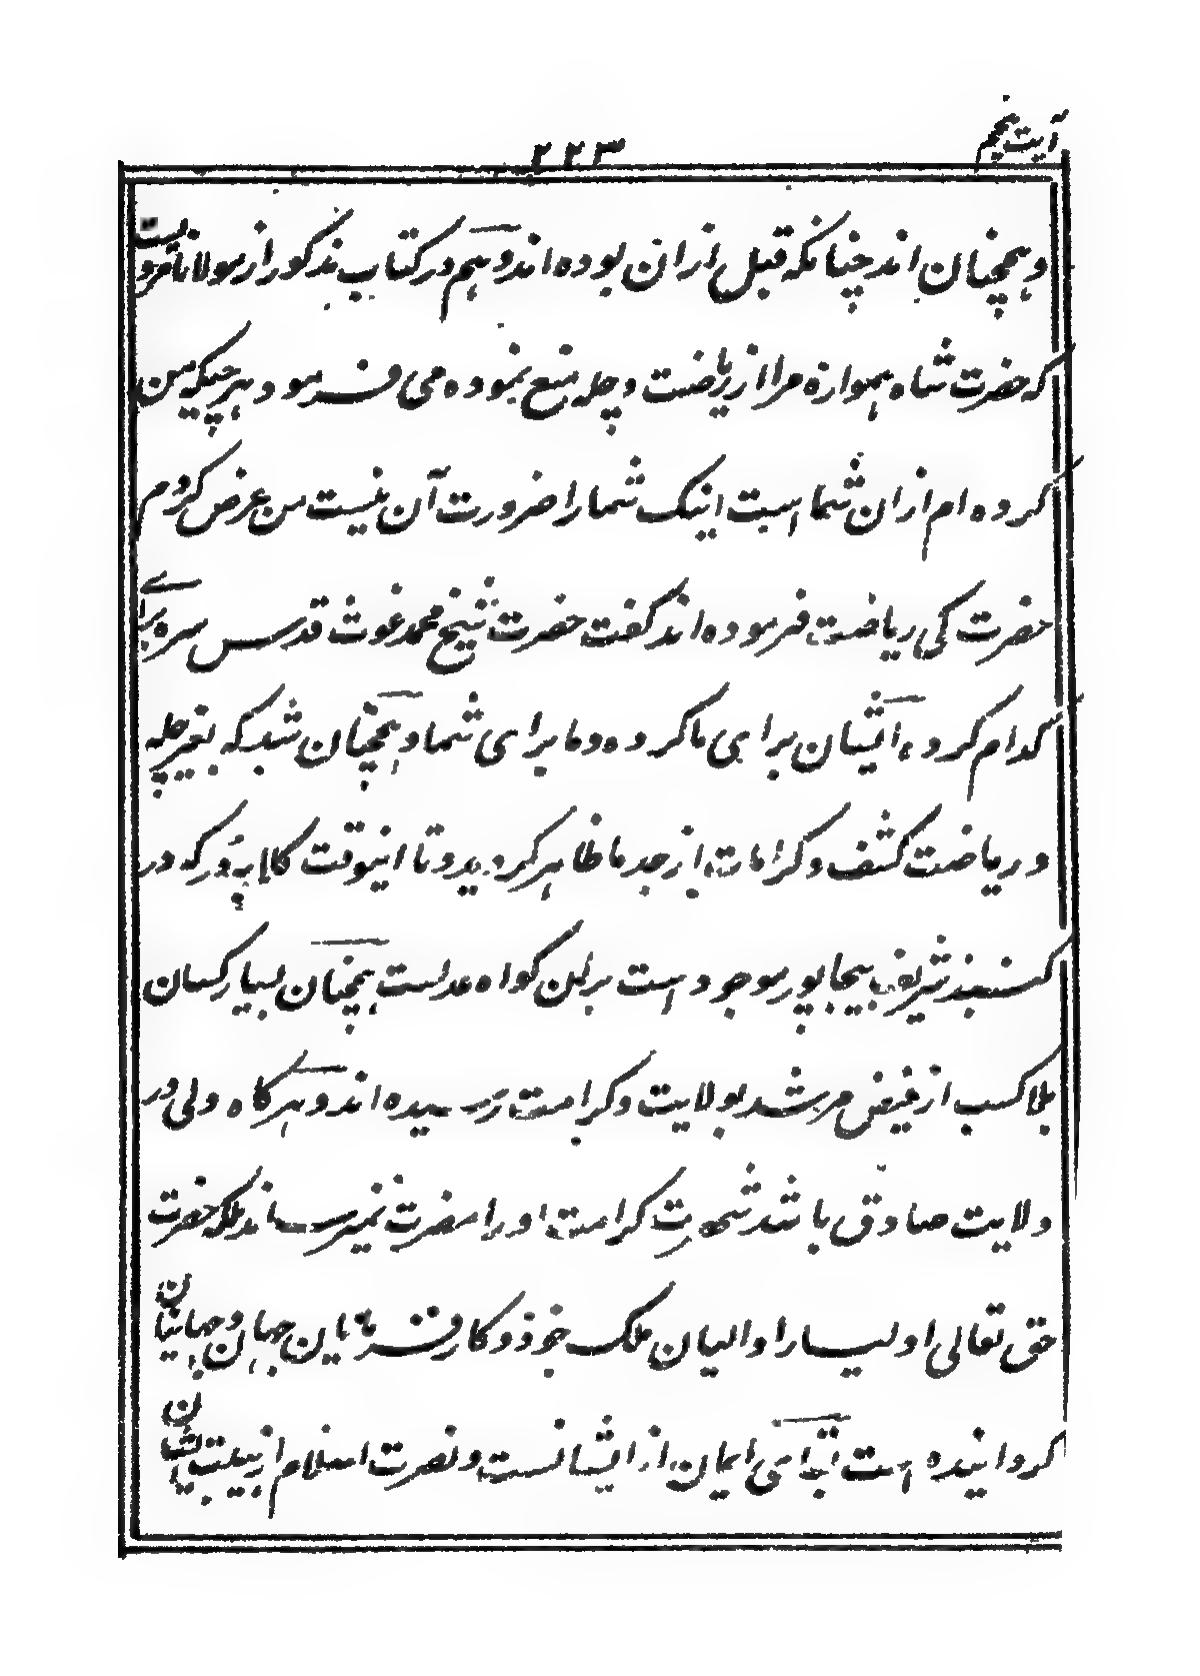 آیت پنجم
۲۲۳
و همچنان اند چنانکه قبل ازان بوده اند و هم در کتاب مذکور از مولانا مرویست
که حضرت شاه همواره مرا از ریاضت و چله منع نموده می فرمود هرچیکه من
کرده ام ازان شما است اینک شما را ضرورت آن نیست من عرض کردم
حضرت کی ریاضت فرموده اند گفت حضرت شیخ محمد غوث قدس سره برای
کدام کرده ایشان برای ما کرده و ما برای شما و همچنان شد که بغیر چله
و ریاضت کشف و کرامات از جد ما ظاهر گردید و تا اینوقت کلاه پدر که در
گنبد شریف بیجاپور موجود است برین گواه عدلست همچنان بسیار کسان
بلا کسب از فیض مرشد بولایت و کرامت رسیده اند و هرگاه ولی در
ولایت صادق باشد شهرت کرامت او را مضرت نمیرساند بلکه حضرت
حق تعالی اولیا را والیان ملک خود و کارفرمایان جهان و جهانیان
گردانیده است بقای ایمان از ایشانست و نصرت اسلام از نیت ایشان